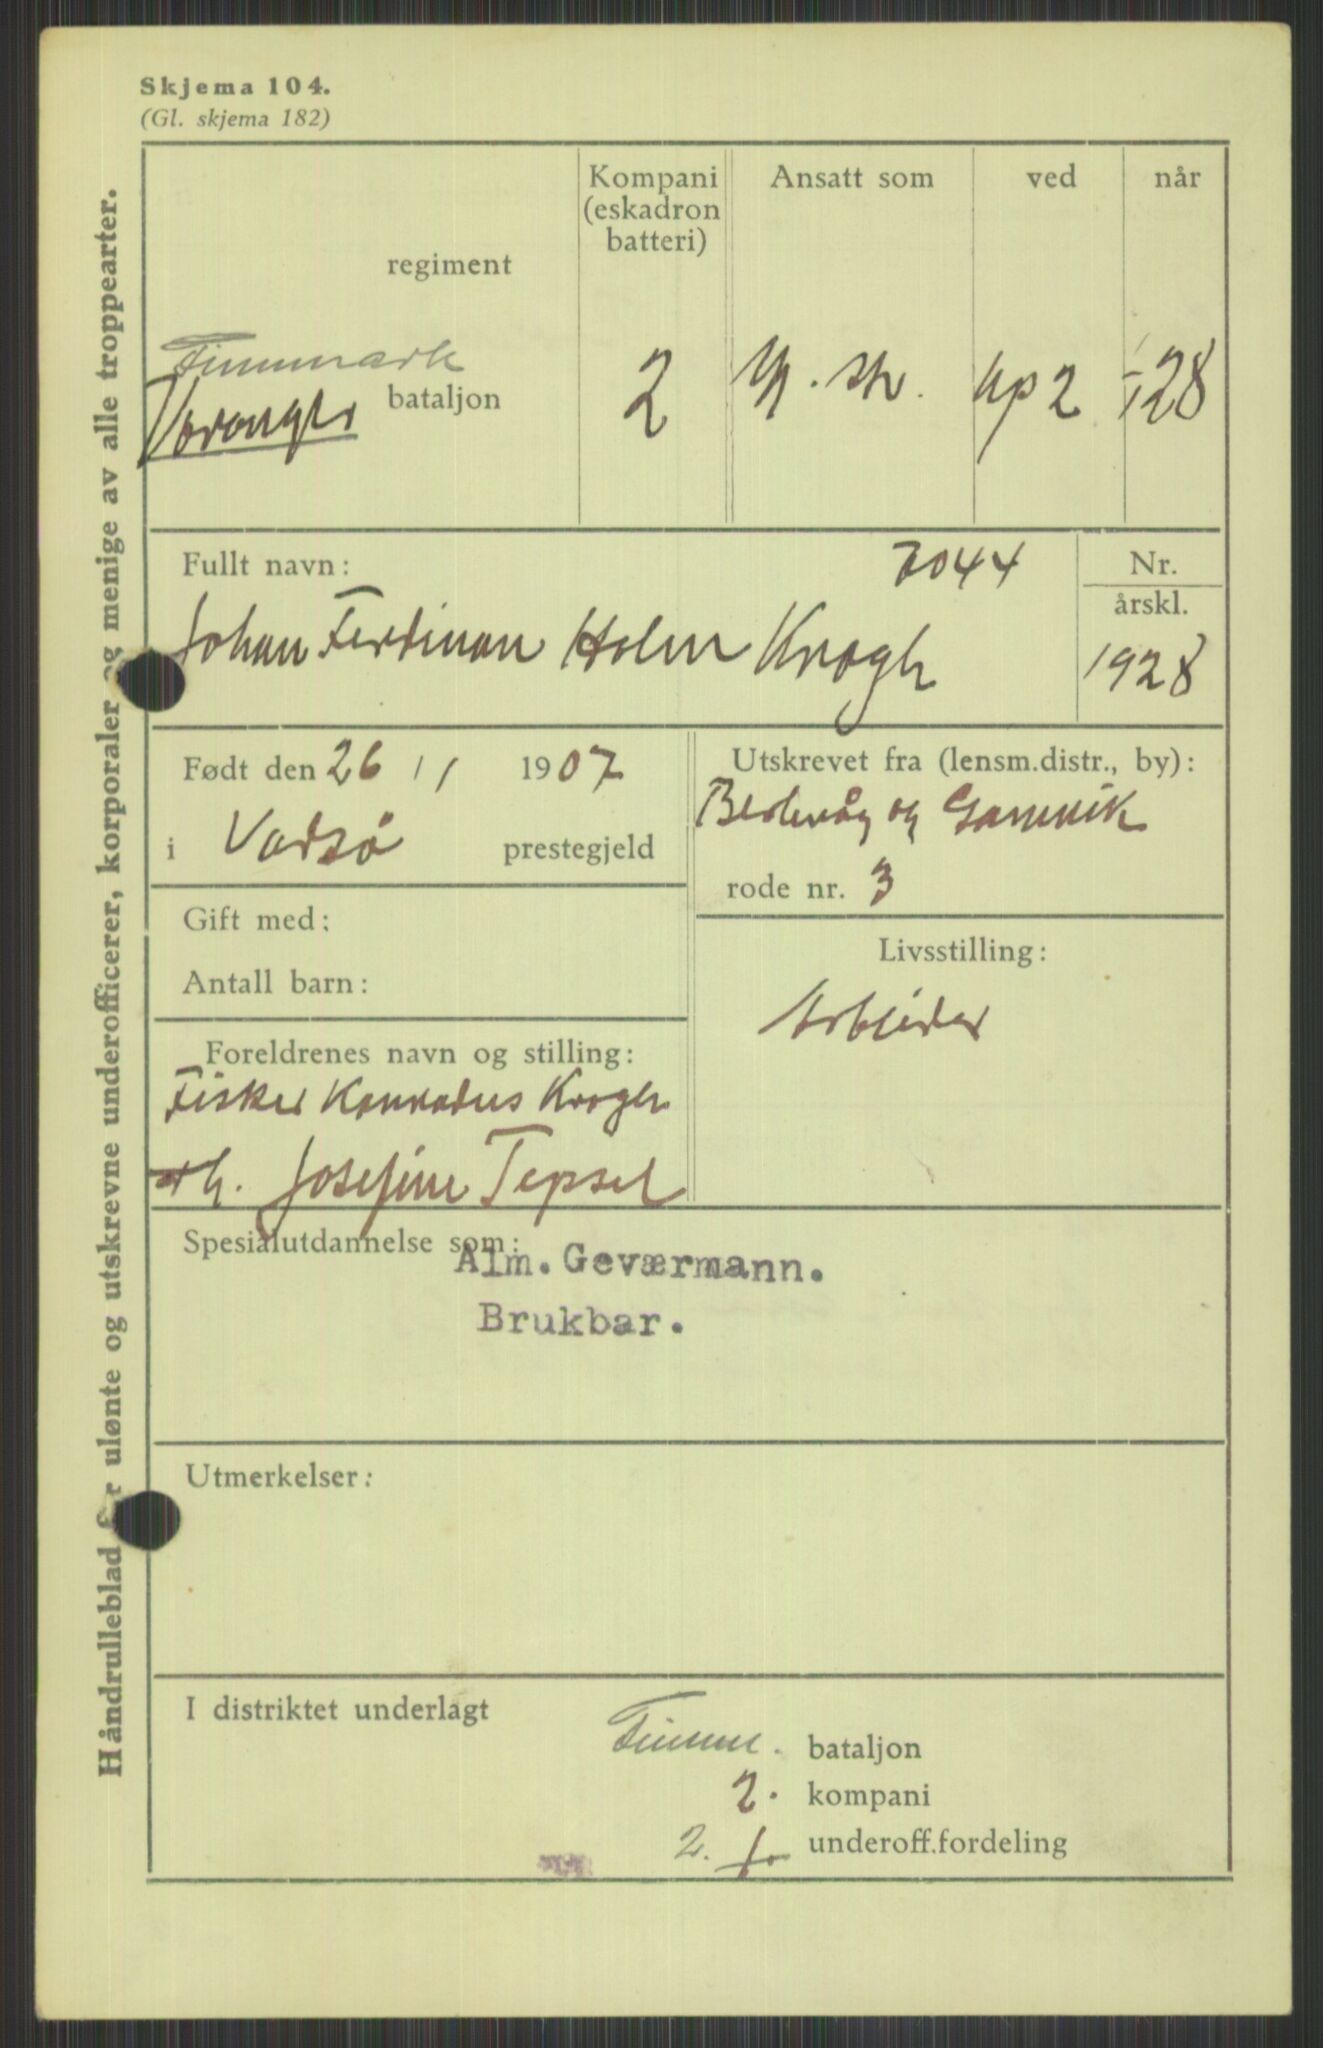 Skjema 104.
(Gl. skjema 182)
Håndrulleblad for ulønte og utskrevne underofficerer, korporaler og menige av alle troppearter.
Kompani (eskadron batteri)
Ansatt som
ved
når
regiment
Finnmark
Varanger bataljon
2
kp 2
28
Fullt navn:
7044
Nr.
årskl.
Johan Ferdinan Holm Krogh
1928
Født den 26/1 1907
i Vadsø prestegjeld
Utskrevet fra (lensm.distr., by):
Berlevåg og Gamvik
rode nr. 3
Gift med:
Antall barn:
Livsstilling:
Arbeider
Foreldrenes navn og stilling:
Fisker Konradus Krogh
Josefine Tepsel
Spesialutdannelse som:
Alm. Geværmann.
Brukbar.
Utmerkelser:
I distriktet underlagt
Finnm. bataljon
2. kompani
2. underoff.fordeling